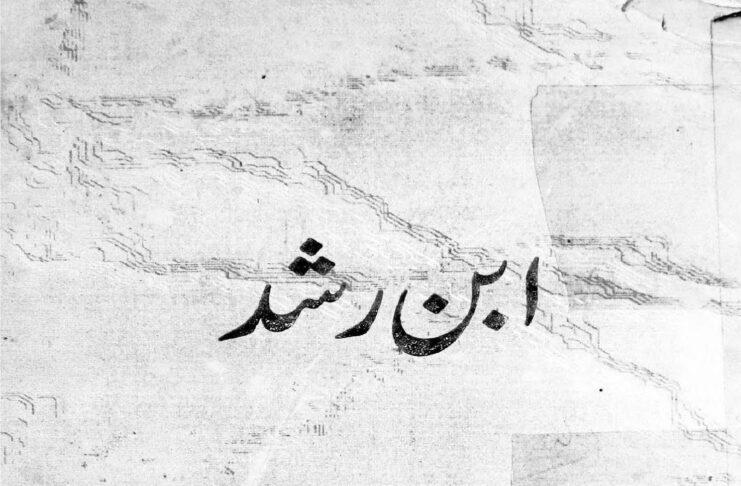 ابن رشد